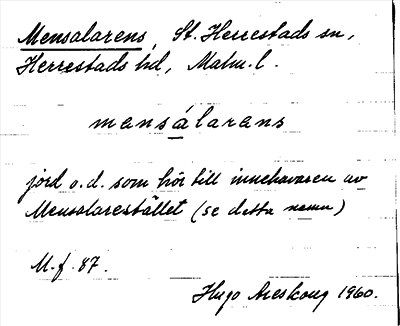 Mensalarens, St. Herrestads sn,
Herrestads hd, Malm. l.
mensálarens
jord o.d. som hör till innehavaren av
Mensalarestället (se detta namn)
M.f. 87.
Hugo Areskoug 1960.